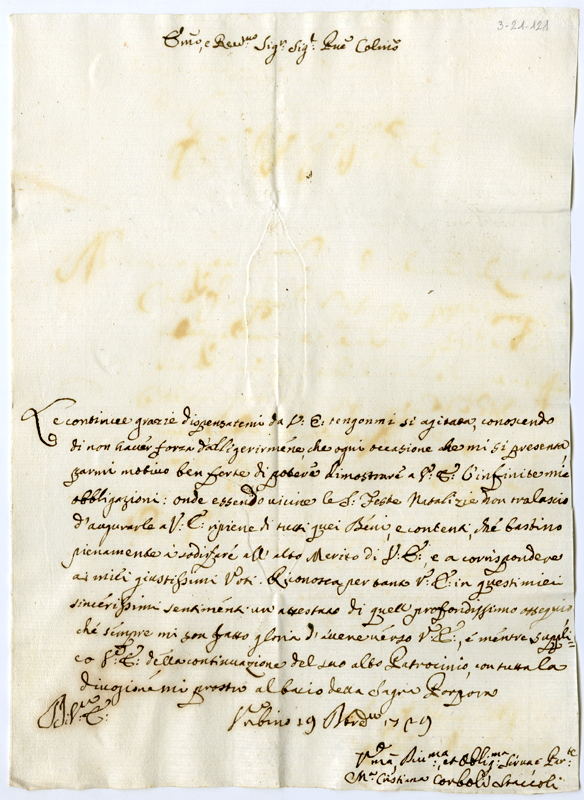 3-21-121
Emo, e Revmo Sigr Sigr Pne Colmo
Le continue grazie dispensatemi da V. E. tengonmi sì agitata, conoscendo
di non haver forza d'alligerirmene, che ogni occasione che mi si presenta,
parmi motivo ben forte di potere dimostrare a V. E. l'infinite mie
obbligazioni: onde essendo vicine le S. Feste Natalizie non tralascio
d'augurarle a V. E. ripiene di tutti quei Beni, e contenti, che bastino
pienamente a sodisfare all'alto Merito di V. E., e a corrispondere
ai miei giustissimi Voti. Riconosca per tanto V. E. in questi miei
sincerissimi sentimenti un attestato di quell profondissimo ossequio
che sempre mi son fatto gloria d'avere verso V. E., e mentre suppli=
co V. E. della continuazione del suo alto Patrocinio, con tutta la
divozione mi prostro al bacio della Sagra Porpora
D. V. E.
Urbino 19 Xbre
Vma, et Obligma Serva
Ma Cristiana Corboli Staccoli